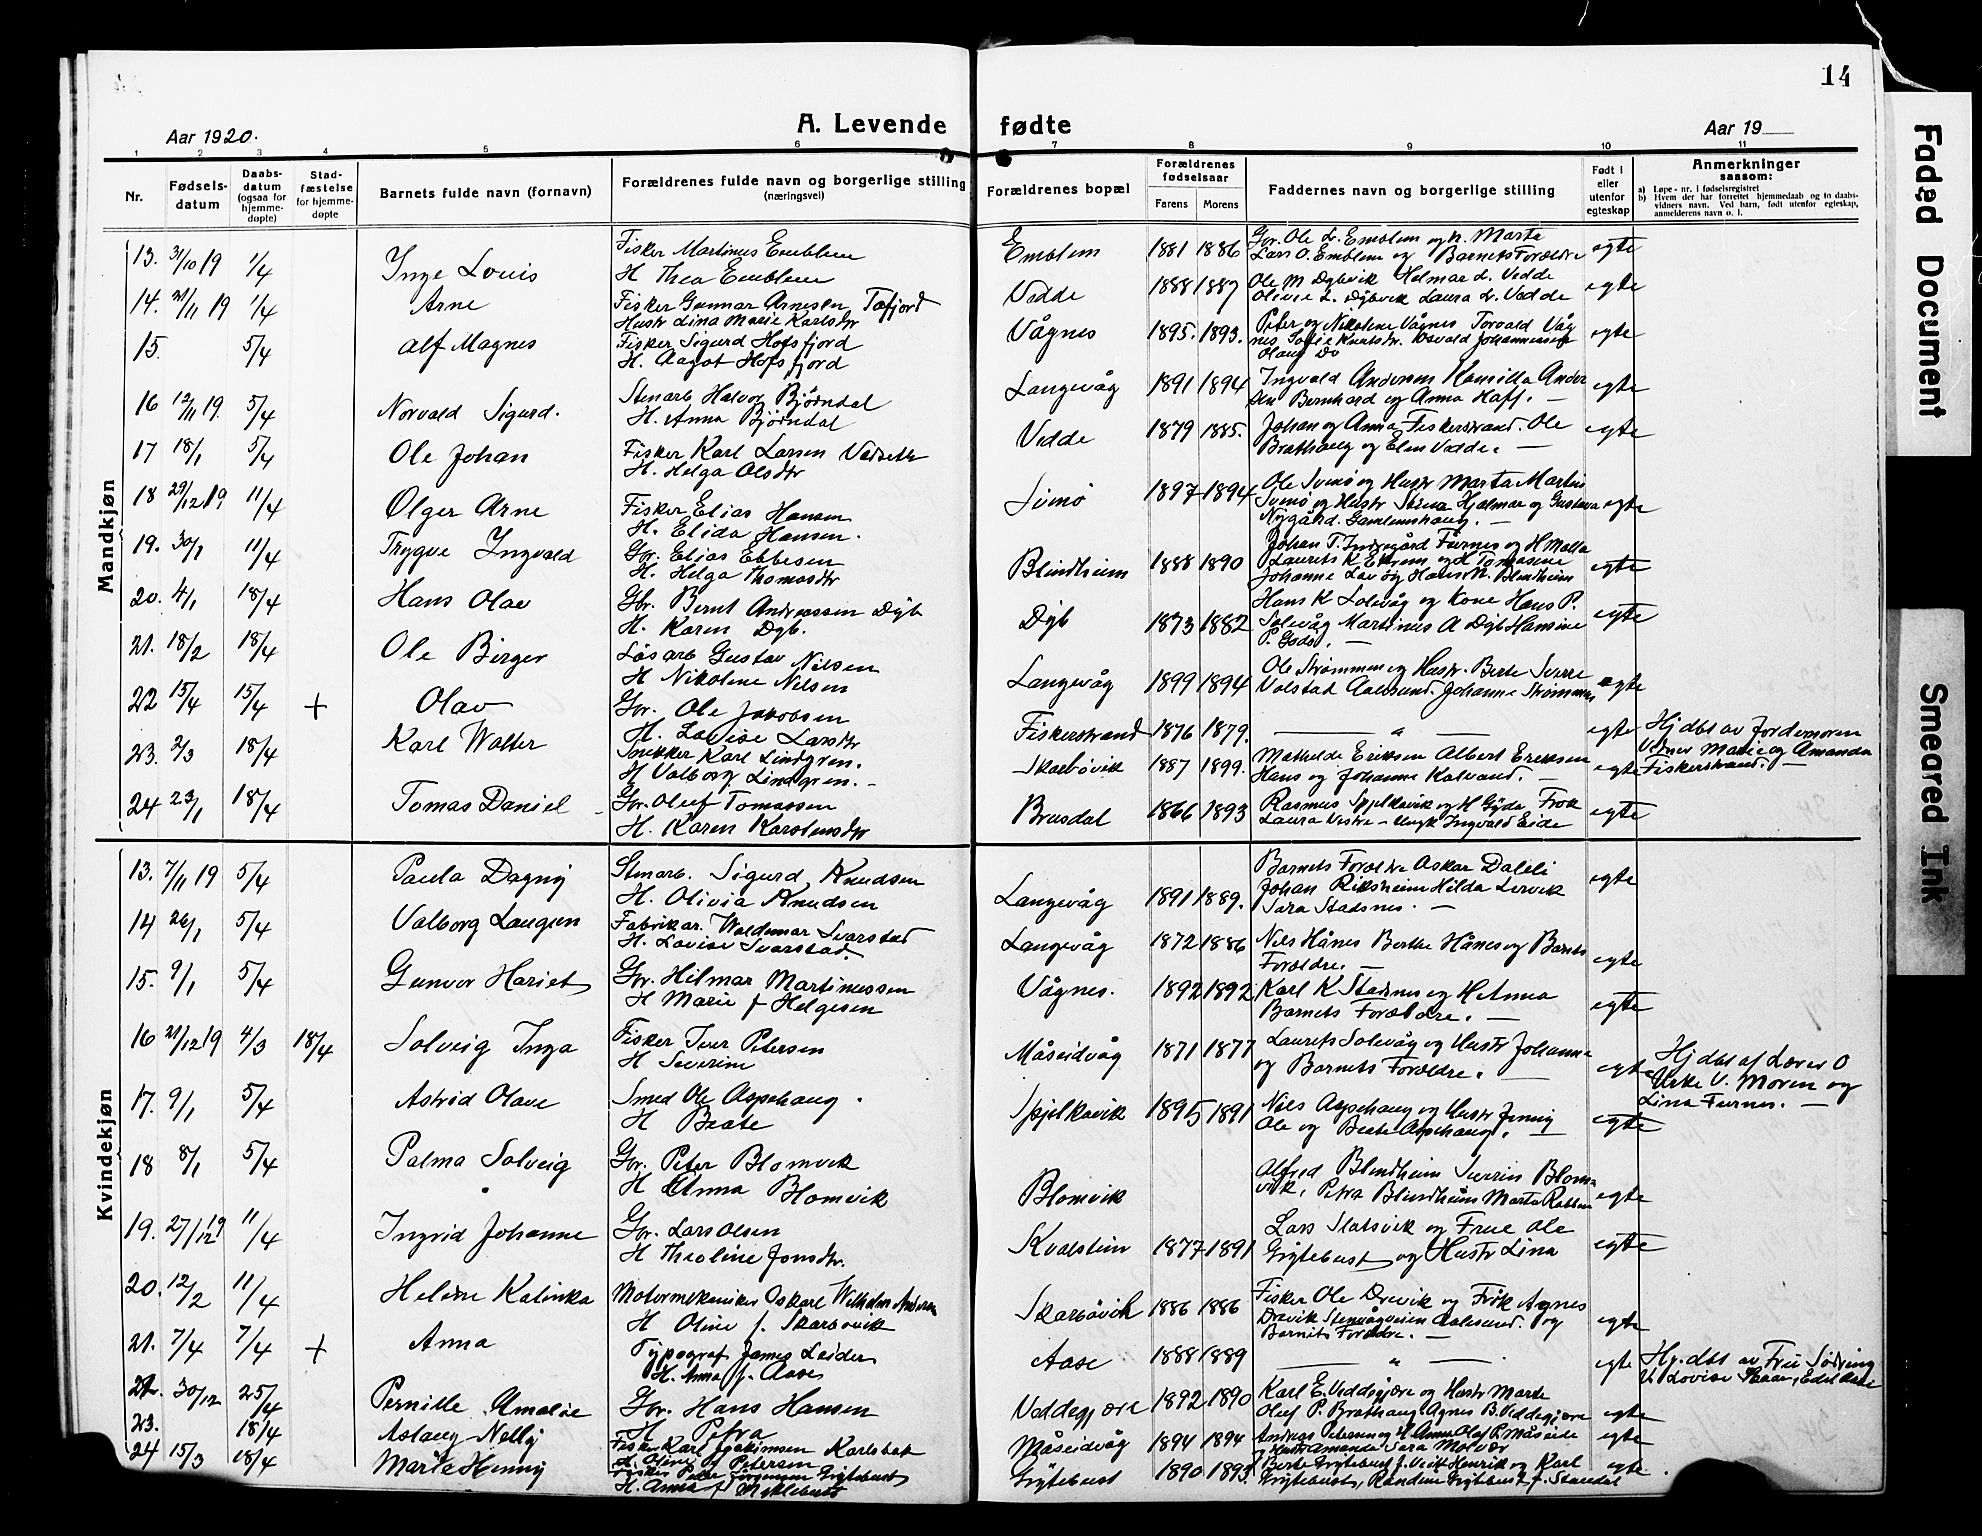 14
Aar 1920.
A. Levende fødte
Aar 19
1 2 3 4 5 6 7 8 9 10 11
Nr.
Fødsels-
datum
Daabs-
datum
(ogsaa for
hjemme-
døpte)
Stad-
fæstelse
for hjemme-
døpte
Barnets fulde navn (fornavn)
Forældrenes fulde navn og borgerlige stilling
(næringsvei)
Forældrenes bopæl
Forældrenes
fødselsaar
Farens Morens
Faddernes navn og borgerlige stilling
Født i
eller
utenfor
egteskap
Anmerkninger
saasom:
a) Løpe-nr. i fødselsregistret
b) Hvem der har forrettet hjemmedaab og to daabs-
vidners navn. Ved barn, født utenfor egteskap,
anmelderens navn o. l.
Mandkjøn
13. 31/10 19 1/4 Inge Louis
Fisker Martinus Emblem
H Thea Emblem
Emblem 1881 1886
Gbr. Ole L. Emblem og h. Marta
Lars O. Emblem og Barnets Forældre
egte
14. 21/11 19 1/4 Arne
Fisker Gunnar Arnesen Tafjord
Hustr Lina Marie Karlsdtr
Vedde 1888 1887
Ole M Dybvik Helmar d. Vedde
Olivie L. Dybvik Laura d. Vedde
egte
15. 5/4 Alf Magnes
Fisker Sigurd Hofsfjord
H. Aagot Hofsfjord
Vågnes 1895. 1893.
Peter og Nikoline Vågnes Torvald Våg
nes Sofie Kurtstr. Osvald Johannessen
Olaug Do
egte
16 12/11 19. 5/4 Norvald Sigurd.
Stmarb Halvor Bjørndal
H. Anna Bjørndal
Langevåg 1891 1894
Ingvald Andersen Kamilla Ander
sen Bernhard og Anna Haff. —
egte
17 18/1 5/4 Ole Johan
Fisker Karl Larsen Vadseth
H. Helga Olsdtr
Vedde 1879 1885.
Johan og Anna Fiskerstrand. Ole
Brathaug og Elen Vedde. —
egte
18 29/12 19 11/4 Olger Arne
Fisker Elias Hansen
H. Elida Hansen.
Svinø 1897 1894
Ole Svinø og Hustr Marta Martin
Svinø og Hustr Stina Hjalmar og Gustava
Nygård. Gamlemshaug. —
egte
19. 30/1 11/4 Trygve Ingvald
Gbr. Elias Ebbesen
H. Helga Thomasdtr
Blindheim 1888 1890
Johan T. Indregård Furnes og H Malla
Laurits K Ekrem og H Tomasine
Johanne Lavåg Hans N. Blindheim
egte
20. 4/1 18/4 Hans Olav
Gbr. Bernt Andreassen Dyb
H. Karen Dyb.
Dyb 1873 1882
Hans K Solevåg og Kone Hans P.
Solevåg Martinus A Dyb Hansine
P. Godø. —
egte
21. 18/2 18/4 Ole Birger
Løsarb Gustav Nilsen
H Nikoline Nilsen
Langevåg 1899 1894
Ole Strømmen og Hustr. Berte Sverre
Volstad Aalesund. Johanne Strømmen
egte
22 15/4 15/4 + Olav
Gbr. Ole Jakobsen
H. Lovise Larsdtr
Fiskerstrand 1876 1879.
— " —
egte
Hjdbt av Jordemoren
Vidner Marie og Amanda
Fiskerstrand. —
23. 2/3 18/4 Karl Walter
Snekker Karl Lindgren.
H Valborg Lindgren. —
Skarbøvik 1887 1899.
Mathilde Eriksen Albert Eriksen
Hans og Johanne Kalvand. —
egte
24 23/1 18/4 Tomas Daniel
Gbr. Oluf Tomassen
H. Karen Karstensdtr
Brusdal 1866 1893
Rasmus Spjelkavik og H Gyda Frøk
Laura Vestre - Ungk Ingvald Eide
egte
Kvindekjøn
13. 7/11 19 5/4 Paula Dagny
Stmarb. Sigurd Knudsen
H. Olivia Knudsen
Langevåg 1891 1889.
Barnets Forældre Oskar Daleli
Johan Riksheim Hilda Lervik
Sara Stadsnes. —
egte
14 26/1 5/4 Valborg Laugen
Fabrikar. Waldemar Svarstad
H. Lovise Svarstad.
Langevåg 1872 1886
Nils Hånes Berthe Hånes og Barnets
Forældre. —
egte
15. 9/1 5/4 Gunvor Hariet
Gbr. Hilmar Martinussen
H Marie f Helgesen
Vågnes. 1892 1892
Karl K Stadsnes og H Anna
Barnets Forældre. —
egte
16 21/12 19 4/3 18/4 Solveig Inga
Fisker Iver Petersen
H Severine
Måseidvåg 1871 1877
Laurits Solevåg og Hustr Johanne
og Barnets Forældre. —
egte
Hjdbt af Lærer O
Urke V. Moren og
Lina Furnes. —
17. 9/1 5/4 Astrid Olave
Smed Ole Aspehaug.
H Beate
Spjelkavik 1895 1891
Nils Aspehaug og Hustr Jenny
Ole og Beate Aspehaug. —
egte
18 8/1 5/4 Palma Solveig
Gbr. Peter Blomvik
H Anna Blomvik
Blomvik
Alfred Blindheim Severin Blom-
vik, Petra Blindheim Marta Rabben
egte
19. 27/12 19 11/4 Ingrid Johanne
Gbr. Lars Olsen
H Theoline Jonsdtr.
Kvalstein 1877 1891
Lars Slatsvik og Frue Ole
Gjytebust og Hustr Lina
egte
20. 12/2 11/4 Helene Katinka
Motormekaniker Oskarl Wilhelm Andersen
H Oline f. Skarbøvik
Skarbøvik 1886 1886
Fisker Ole Drevik og Frøk Agnes
Drevik Stenvågveien Aalesund. og
Barnets Forældre. —
egte
21. 7/4 7/4 + Anna
Typograf James Leider
H. Anna f. Aase
Aase 1888 1889
— " —
egte
Hj.dbt av Fru Sødring
V. Lovise
22. 30/12 25/4 Pernille Amalie
Gbr. Hans Hansen
H Petra
Veddegjære 1892 1890
Karl E. Veddegjære og Hustr Marte
Oluf P. Brathaug Agnes B. Veddegjære
egte
23. 18/4 Aslaug Nelly
Fisker Karl Joakimsen Karlsbak
H. Oline f Petersen
Måseidvåg 1894 1894
Andreas Petersen og H Anna Olaf P. Måseide
og Hustr Amanda Sara Molvær
egte
24 15/3 18/4 Marie Henny
Fisker Peter Jørgensen Gjytebust
H. Anna f Myklebust
Gjytebust 1890 1893
Berte Gjytebust f. Veit Henrik og Karl
Gjytebust, Randine Gjytebust f. Standal
egte
Faded Document
Smeared Ink